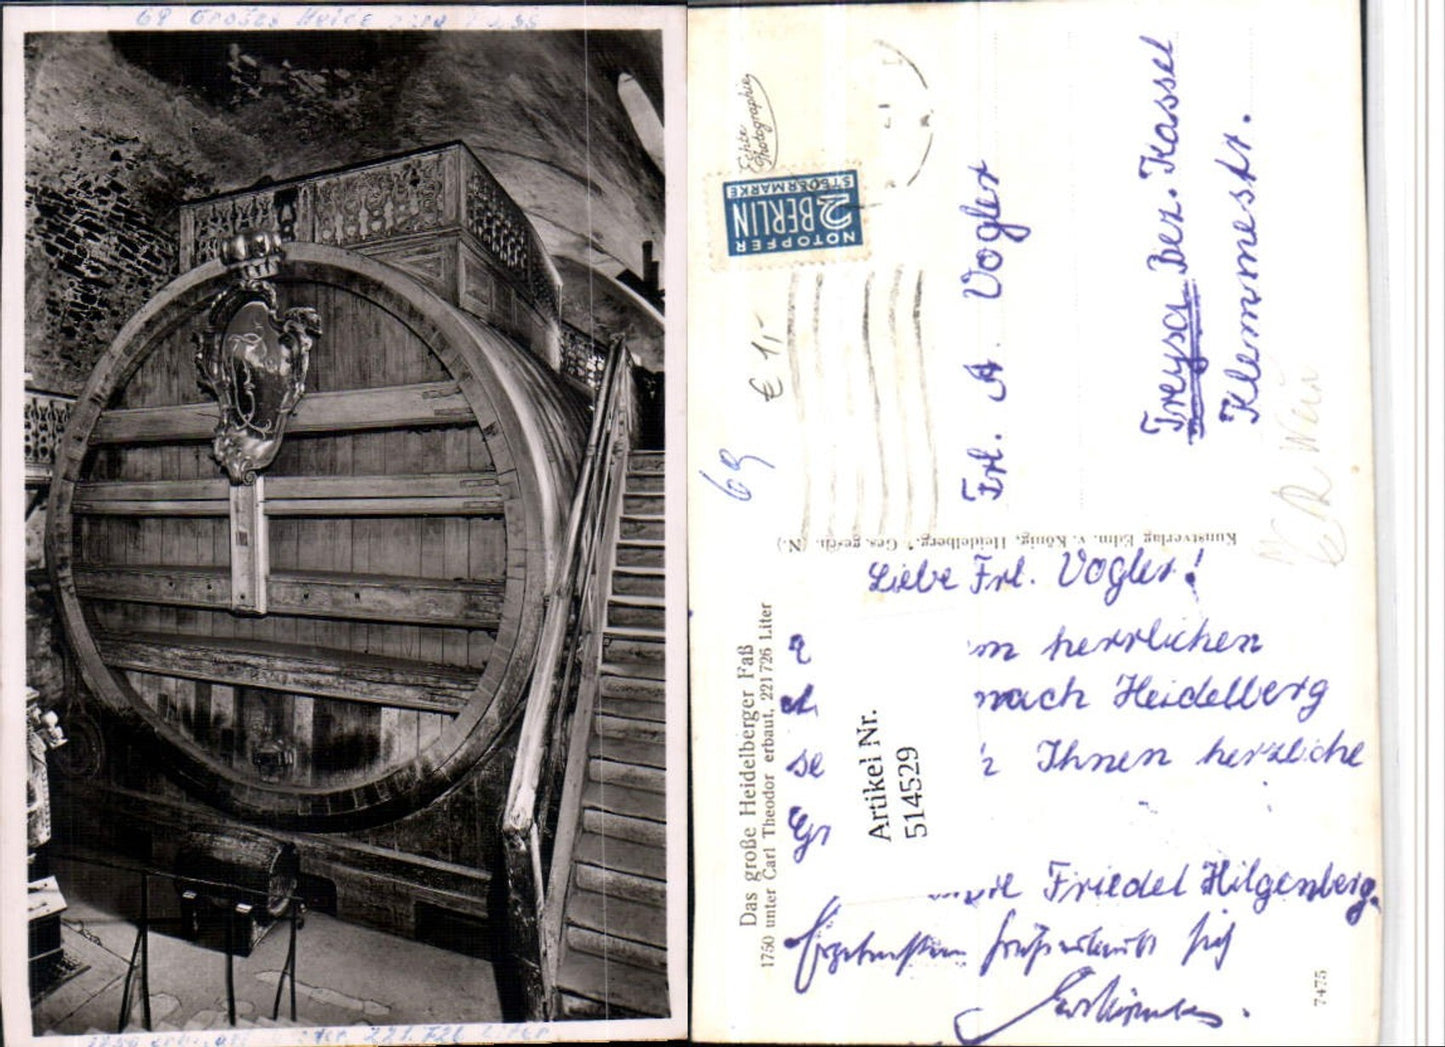 69 Großes Heidelberg Fass
221.726 Liter
Echte
Photographie
NOTOPFER
2 BERLIN
STEUERMARKE
€ 1,-
69
Frl. A. Vogler
Treysa Bez. Kassel
Klemmestr.
Wein
Kunstverlag Edm. v. König, Heidelberg. Ges. gesch.
Das große Heidelberger Faß
1750 unter Carl Theodor erbaut, 221 726 Liter
Liebe Frl. Vogler!
herrlichen
nach Heidelberg
se Ihnen herzliche
Gr
Artikel Nr.
514529
Friedel Hilgenberg.
sich
7475